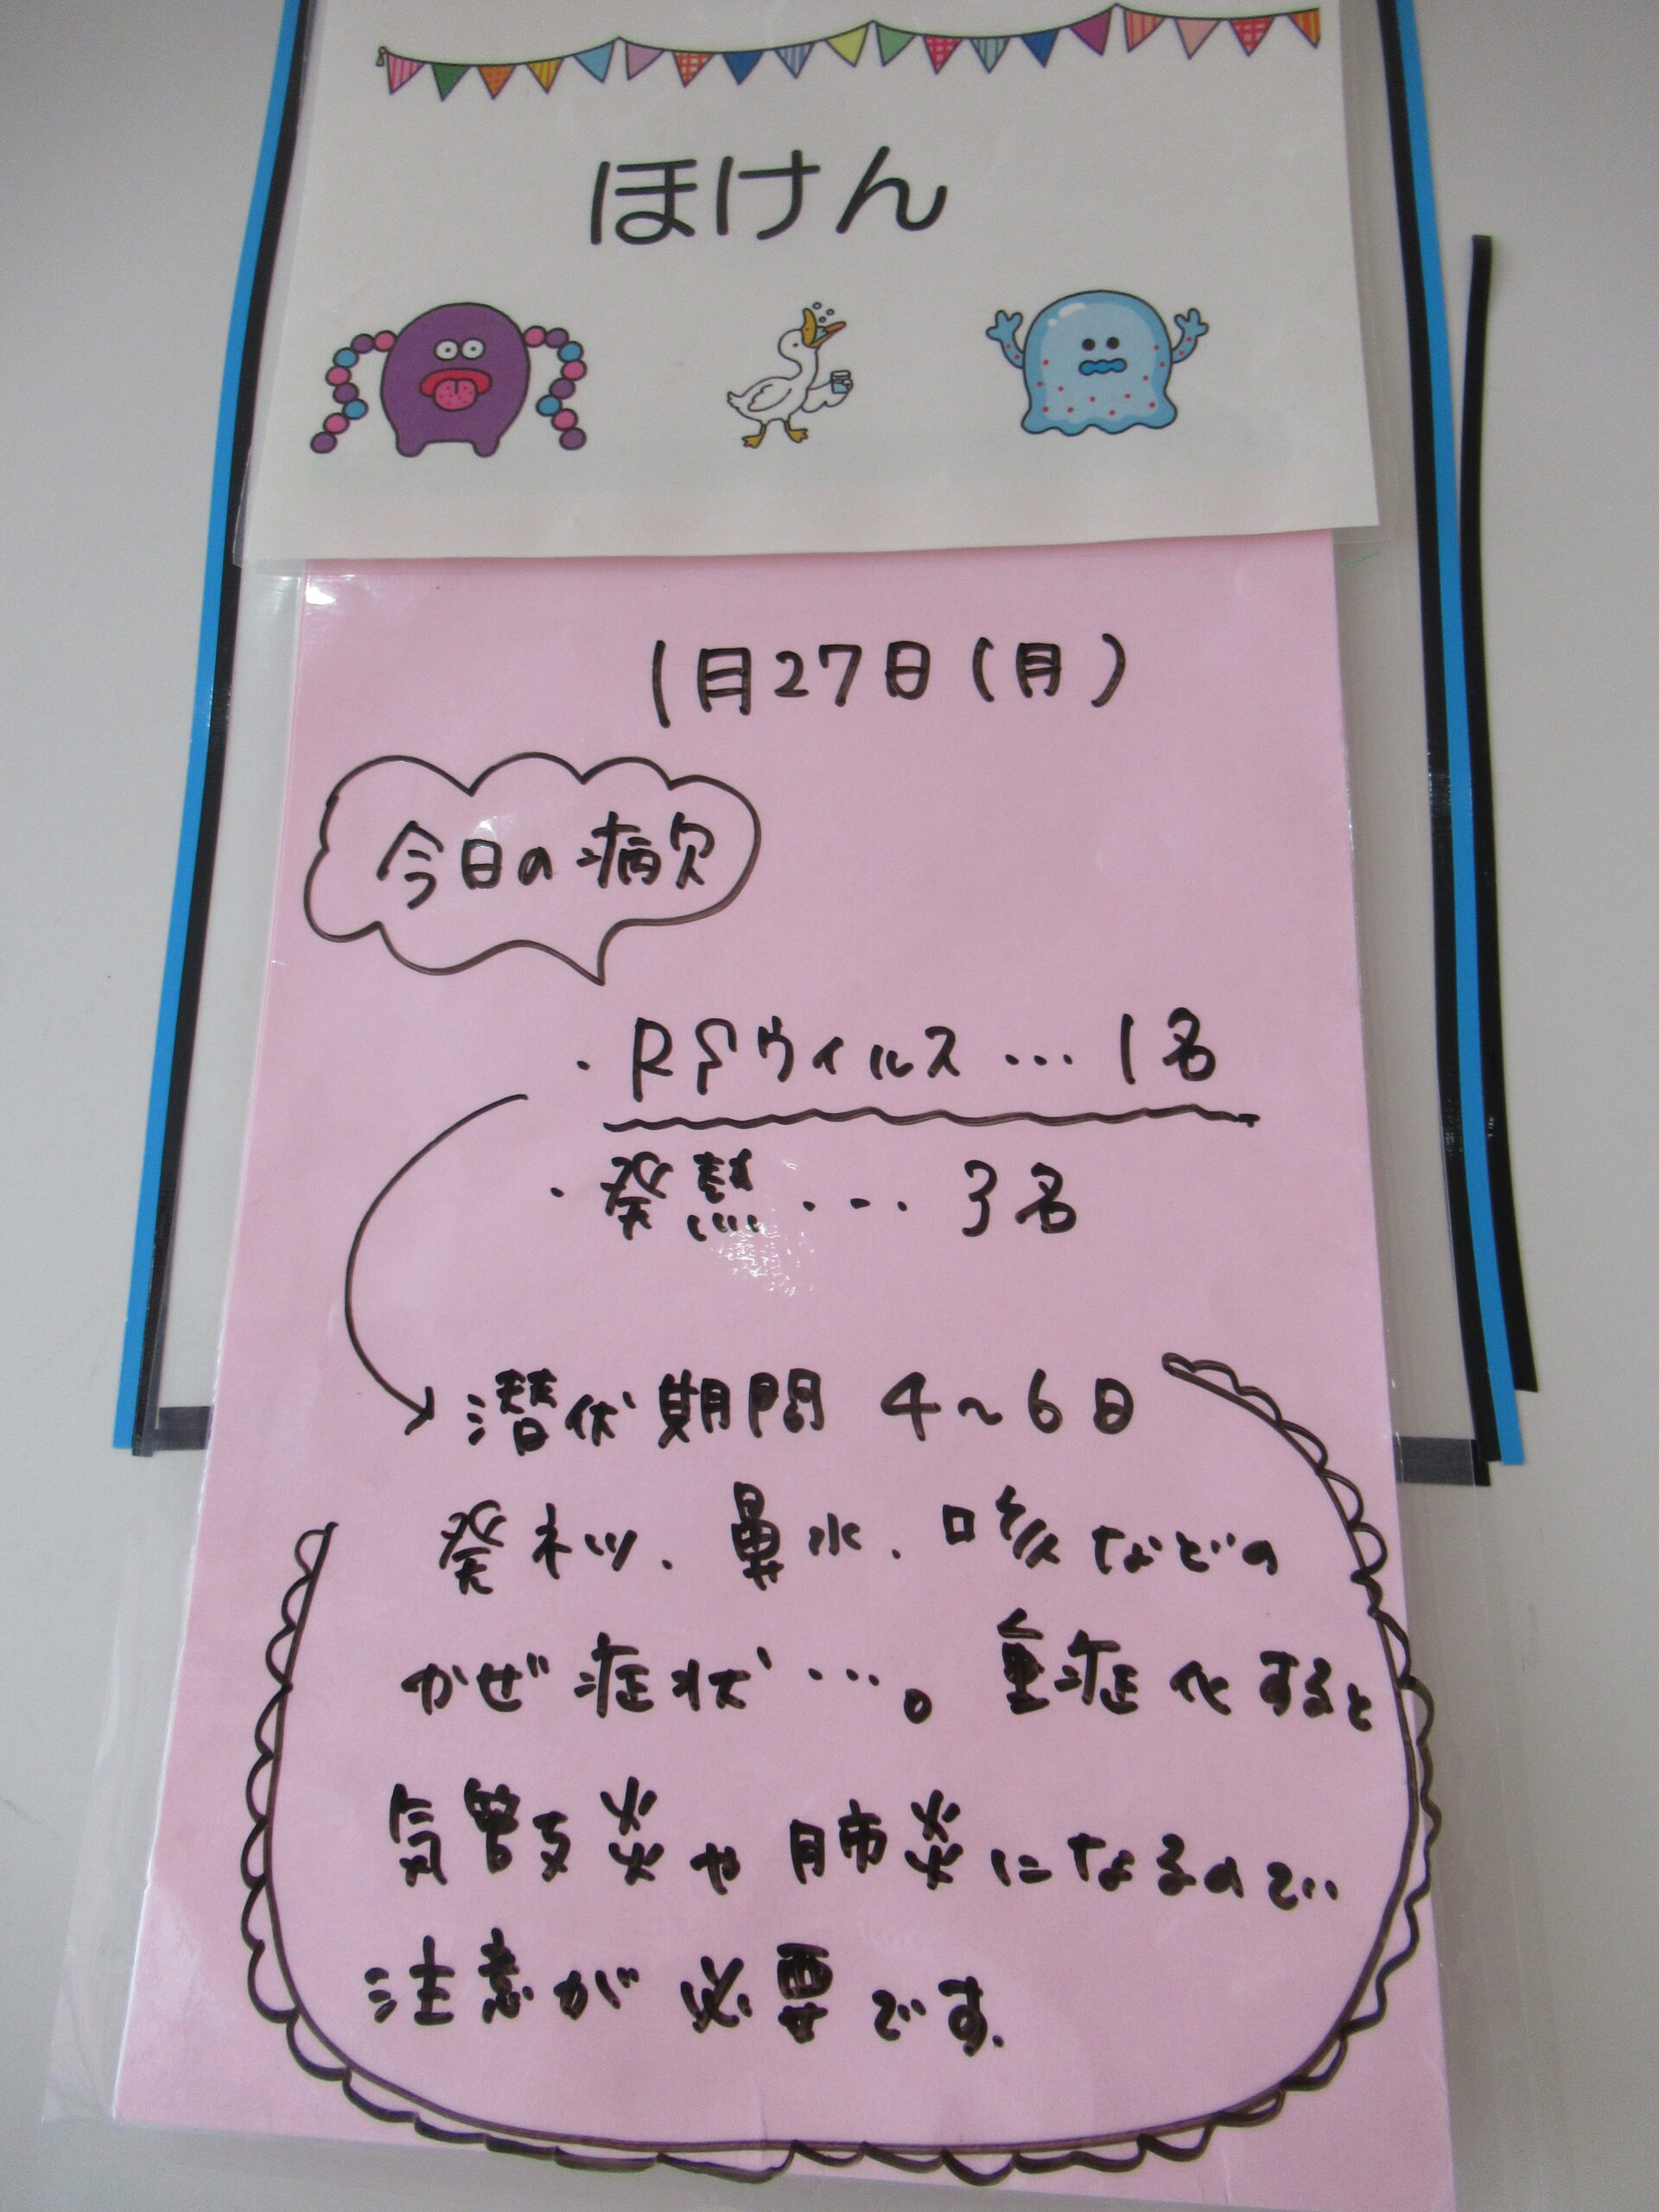 ほけん
1月27日(月)
今日の病欠
・RSウイルス…1名
・発熱…3名
潜伏期間 4～6日
発ネツ、鼻水、咳などの
かぜ症状…。重症化すると
気管支炎や肺炎になるので
注意が必要です。